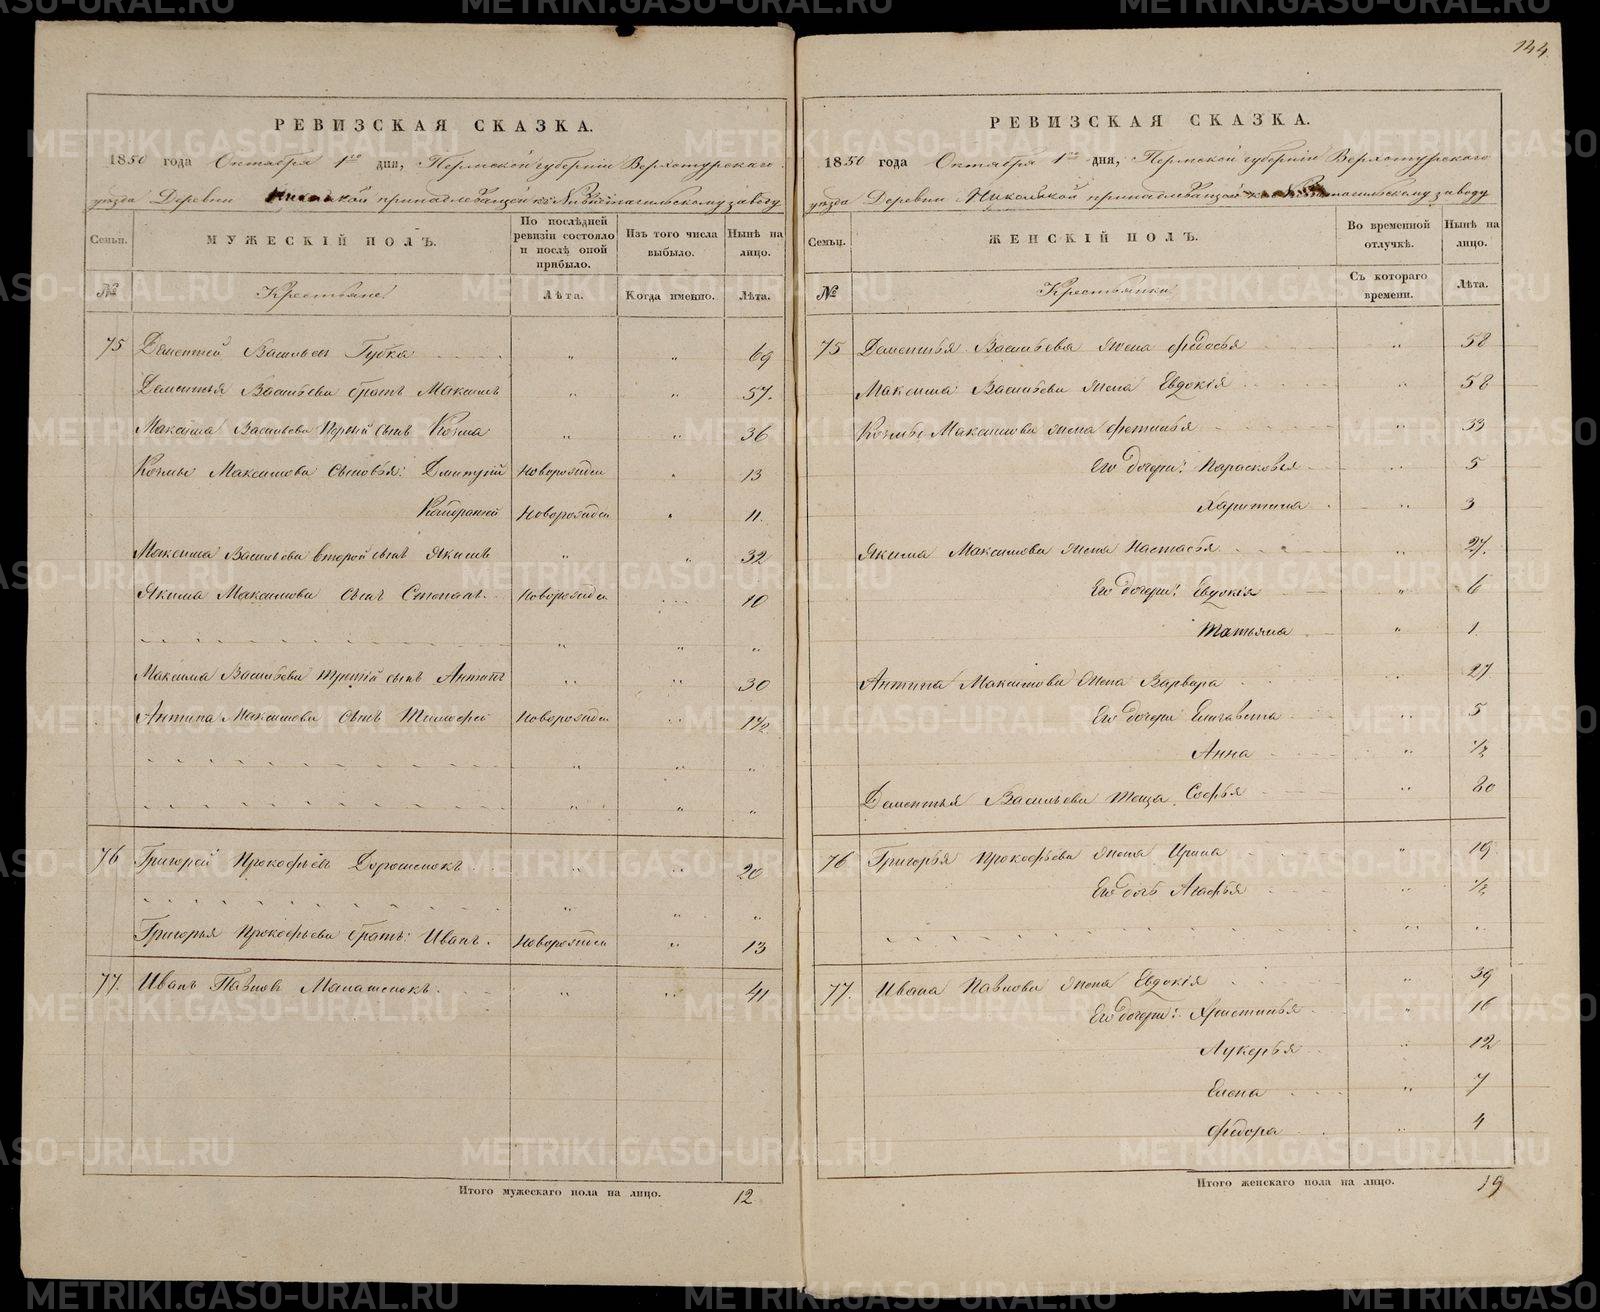 144.
РЕВИЗСКАЯ СКАЗКА.
1850 года Октября 1го дня, Пермской губерніи Верхотурскаго
уѣзда Деревни Никольской принадлежащей къ Нижнетагильскому заводу
Семьи.
МУЖЕСКІЙ ПОЛЪ.
По послѣдней ревизіи состояло и послѣ оной прибыло.
Изъ того числа выбыло.
Нынѣ на лицо.
№
Крестьяне
Лѣта.
Когда именно.
Лѣта.
75 Дементей Васильевъ Губка " " 69
Дементья Васильева братъ Максимъ " " 57.
Максима Васильева Первый сынъ Козма " " 36
Козмы Максимова сыновья: Дмитрій Новорожден " 13
Новорожден " 11.
Максима Васильева Второй сынъ Якимъ " " 32
Якима Максимова сынъ Степанъ Новорожден 10
" " "
Максима Васильева третій сынъ Антипъ " " 30
Антипа Максимова сынъ Тимофей Новорожден " 1 1/2
" " "
" " "
76 Григорей Прокофьевъ " " 20
" " "
Григорья Прокофьева братъ: Иванъ. Новорожден " 13
77. Иванъ Павловъ " " 41
Итого мужескаго пола на лицо. 12
РЕВИЗСКАЯ СКАЗКА.
1850 года Октября 1го дня, Пермской губерніи Верхотурскаго
уѣзда Деревни Никольской принадлежащей къ Нижнетагильскому заводу
Семьи.
ЖЕНСКІЙ ПОЛЪ.
Во временной отлучкѣ.
Нынѣ на лицо.
№
Крестьянки
Съ котораго времени.
Лѣта.
75 Дементья Васильева жена Федосья " 58
Максима Васильева жена Евдокія " 58
Козмы Максимова жена Фетинья " 33
Его дочери: Парасковья " 5
Харитина " 3
Якима Максимова жена Настасья " 27.
Его дочери: Евдокія " 6
Татьяна " 1
Антипа Максимова жена Варвара " 27
Его дочери Елизавета " 5
Анна " 1/2
Дементья Васильева теща Софья " 80
76 Григорья Прокофьева жена Ирина " 19
Его дочь Агафья " 1/2
" "
77. Ивана Павлова жена Евдокія " 39
Его дочери: Христинья " 16
Лукерья " 12
Елена " 7
Федора " 4
Итого женскаго пола на лицо. 19
METRIKI.GASO-URAL.RU